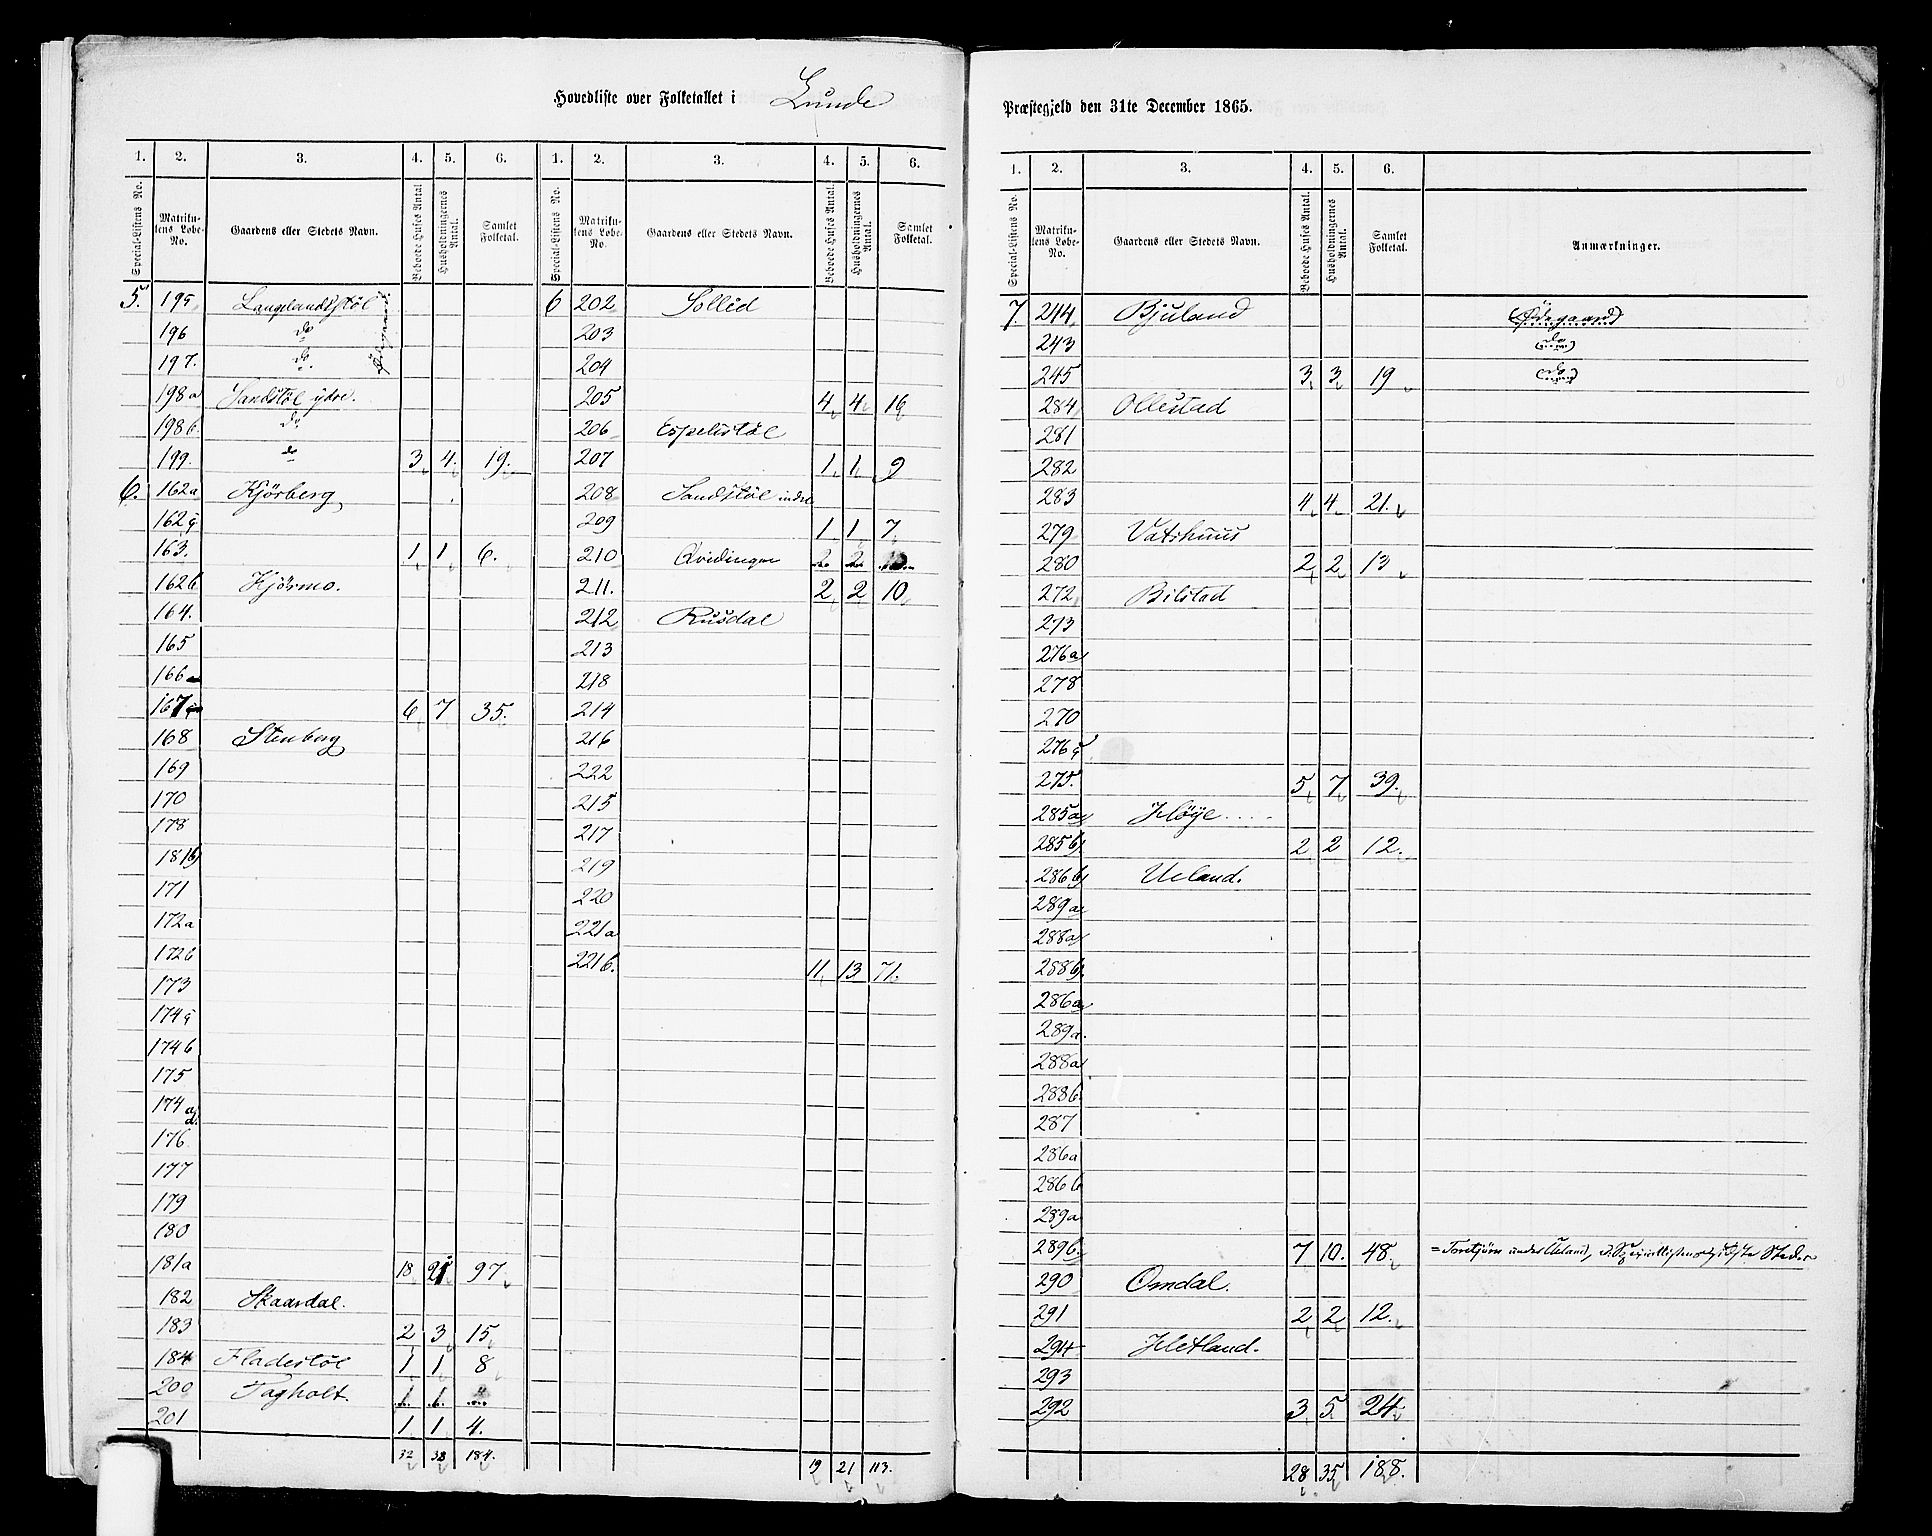 Hovedliste over Folketallet i Lunde
1. 2. 3. 4. 5. 6. 1. 2. 3. 4. 5. 6.
Special-Listens No. Matrikulens Løbe-No. Gaardens eller Stedets Navn. Beboede Huses Antal Husholdningernes Antal. Samlet Folketal. Special-Listens No. Matrikulens Løbe-No. Gaardens eller Stedets Navn. Beboede Huses Antal. Husholdningernes Antal. Samlet Folketal.
5. 195 Langelandstøl 6 202 Sollid
196 do 203
197. do. 204
198a Sandstøl ydre. 205 4 4 16
198b. do 206 Espelistøl
199. do 3 4. 19. 207 1 1 9
6. 162a Kjørberg 208 Sandstøl indre
162c 209 1 1 7
163. 1 1 6. 210 Qvidingen 2 2
162b Kjørmo. 211. 2 2 10
164. 212 Rusdal
165 213
166 218
167 6 7 35. 214
168 Stenberg 216
169 222
170 215
178 217
181b 219
171 220
172a 221a
172b 221b. 11 13 71.
173
174c
174b
175
174a d.
176
177
179
180
181a 18 21 97
182 Skaardal.
183 2 3 15
184 Fladestøl 1 1 8
200 Tagholt. 1 1.
201 1 1 4.
32 38 184. 19 21 113.
Præstegjeld den 31te December 1865.
1. 2. 3. 4. 5. 6.
Special-Listens No. Matrikulens Løbe-No. Gaardens eller Stedets Navn. Beboede Huses Antal. Husholdningernes Antal. Samlet Folketal. Anmærkninger.
7. 244 Bjuland (Ødegaard)
243 (do)
245 3 3 19 (do)
284 Ollestad
281
282
283 4 4 21.
279 Vatshuus
280 2 2 13
272 Bilstad
273
276a
278
270
276c
275. 5 7 39.
285a Høye....
285b 2 2 12.
286b Ueland.
289a
288a
288b.
286a
289a.
288a
288b.
287
286a
286b
289a
289b. 7 10. 48. = Toretjørn under Ueland,
290 Omdal.
291 2 2 12.
294 Hetland.
293
292 3 5 24
28 35 188.